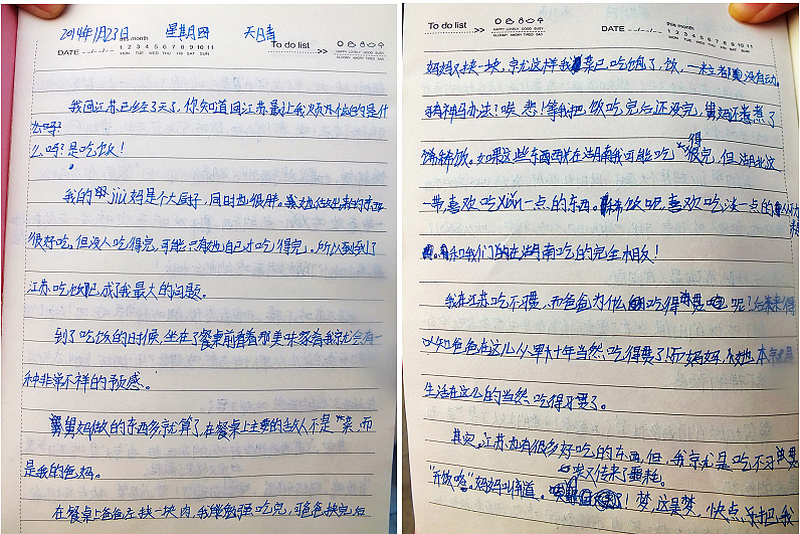 2014年1月23日 星期四 天日青
this month
1 2 3 4 5 6 7 8 9 10 11
DATE
MON TUE WED THU FRI SAT SUN
To do list >>
HAPPY LOVELY GOOD BUSY
GLOOMY ANGRY TIRED SAD
我回江苏已经3天了,你知道回江苏最让我烦的是什
么吗?
么吗?是吃饭!
我的jiù妈是个大厨,同时也很胖。她做出来的东西
很好吃。但没人吃得完,可能只有她自己才吃得完。所以到了
江苏吃饭已成了我最大的问题。
到了吃饭的时候,坐在了餐桌前看着那美味家肴我就会有一
种非常不祥的预感。
舅妈做的东西多就算了,在餐桌上主要的敌人不是"菜,而
是我的爸妈。
在餐桌上爸爸夹一块肉,我能勉强吃完,可爸爸夹完后
To do list >>
HAPPY LOVELY GOOD BUSY
GLOOMY ANGRY TIRED SAD
DATE
this month
1 2 3 4 5 6 7 8 9 10 11
MON TUE WED THU FRI SAT SUN
妈妈又夹一块,就这样我菜已吃饱了,饭,一粒都没有动,
有神马办法?唉 悲!等我把饭吃完后还没完,舅妈还煮了
稀饭。如果这些东西在湖南我可能吃得很完,但湖北这
一带,喜欢吃xián一点的东西。稀饭呢,喜欢吃淡一点的
和我们在湖南吃的完全相反!
我在江苏吃不惯,而爸爸为什么吃得惯呢?后来得
以知爸爸在这儿从军十年当然吃得惯了!而妈妈,她本就是
生活在这儿的当然吃得惯了。
其实,江苏也有很多好吃的东西,但,我就是吃不习惯
唉又传来了噩耗。
"开饭咯"。妈妈叫道。!梦,这是梦,快点,把我